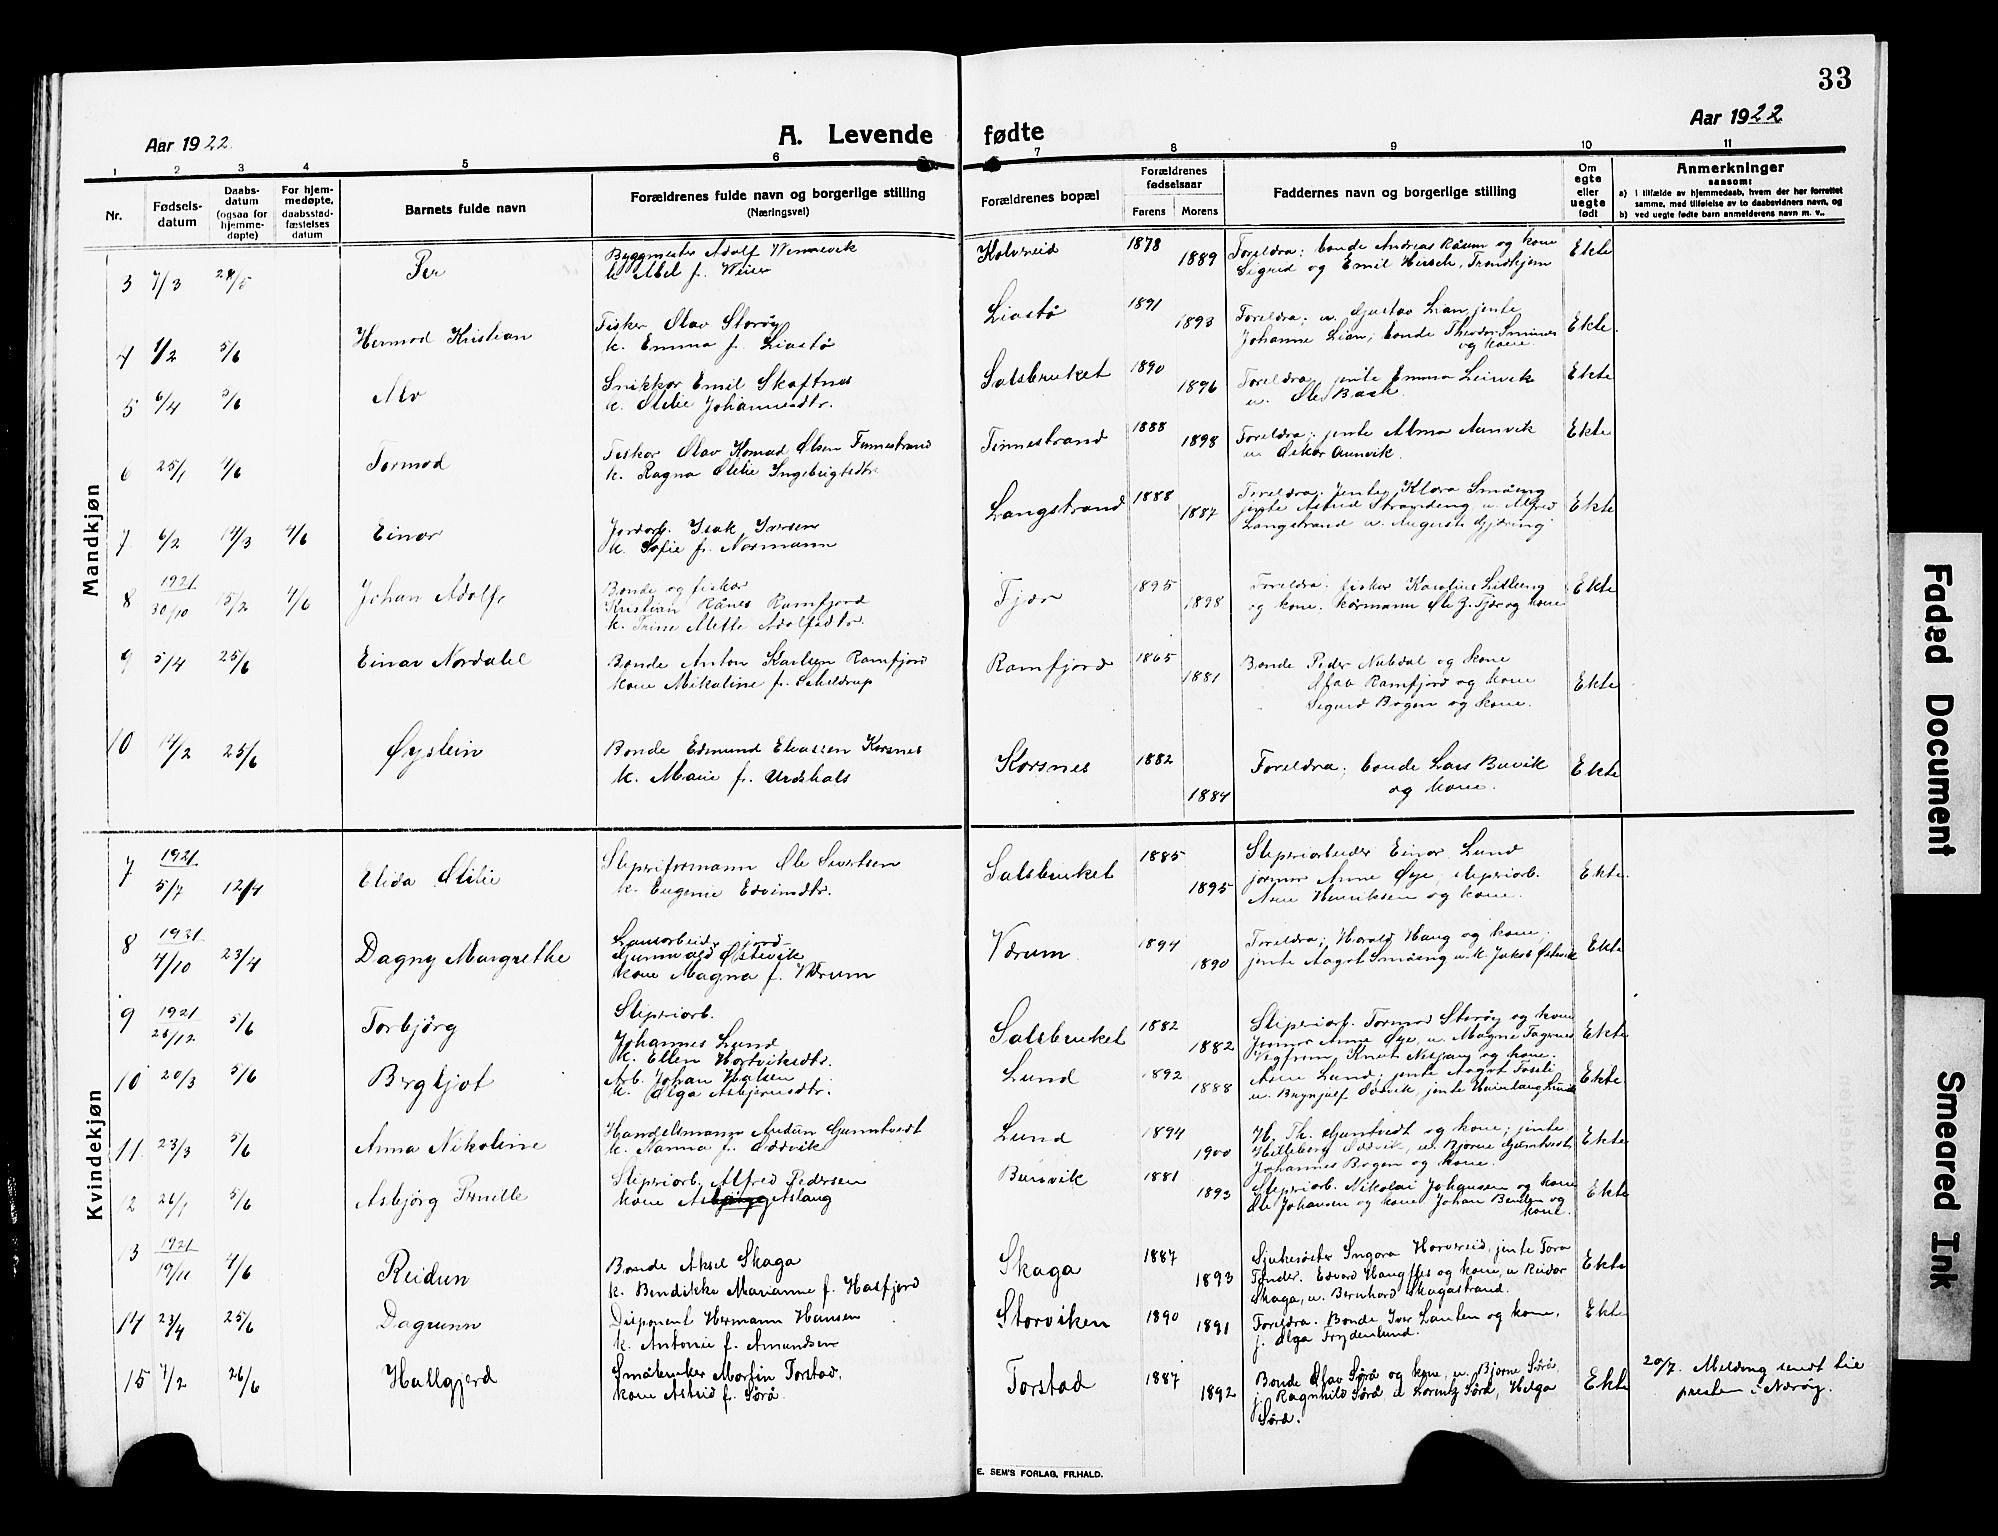 33
Aar 1922
A. Levende fødte
Aar 1922
1 2 3 4 5 6 7 8 9 10 11
Nr.
Fødsels-
datum
Daabs-
datum
(ogsaa for
hjemme-
døpte)
For hjem-
medøpte,
daabsstad-
fæstelses
datum
Barnets fulde navn
Forældrenes fulde navn og borgerlige stilling
(Næringsvei)
Forældrenes bopæl
Forældrenes
fødselsaar
Farens Morens
Faddernes navn og borgerlige stilling
Om
egte
eller
uegte
født
Anmerkninger
saasom:
a) i tilfælde av hjemmedaab, hvem der har forrettet
samme, med tilføielse av to daabsvidners navn, og
b) ved uegte fødte barn anmelderens navn m. v..
Mandkjøn
3 7/3 28/5 Per
Byggmester Adolf Wennevik
k. Abel f. Weier
Kolvereid 1878 1889
Foreldra; bonde Andreas Råum og kone
Sigrid og Emil Hirsch, Trondhjem
Ekte
4 1/2 5/6 Hermod Kristian
Fisker Olav Storøy
k. Emma f. Liastø
Liastø 1891 1893
Foreldra; u. Gustav Lian, jente
Johanne Lian, bonde Theodor
og kone.
Ekte
5 6/4 5/6 Alv
Snikkar Emil Skaftnes
k. Otilie Johannesdtr.
Salsbruket 1890 1896
Foreldra, jente Emma Leirvik
u. Ole Baak.
Ekte
6 25/1 4/6 Tormod
Fisker Olav Konrad Olsen Finnestrand
k. Ragna Otilie Ingebrigtsdtr.
Finnestrand 1888 1898
Foreldra; jente Alma Aunvik
u. Oskar Aunvik.
Ekte
7 6/2 14/3 4/6 Einar
Jordarb. Isak Iversen
k. Sofie f. Normann
Langstrand 1888 1887
Foreldra. Jente Klara Småeng
jente Astrid Strandeng u. Alfred
Langstrand u. August Gjæring
Ekte
8 1921 30/10 15/2 4/6 Johan Adolf
Bonde og fisker
Kristian Rånes Ramfjord
k. Trine Mette Adolfsdtr.
Fjær 1895 1898
Foreldra. fisker Karolius
og kone. Ole J. Fjær og kone
Ekte
9 5/4 25/6 Einar Nordahl
Bonde Anton Karlsen Ramfjord
kone Mikaline f. Scheldrup
Ramfjord 1865 1881
Bonde Peder Nubdal og kone
Olav Ramfjord og kone
Sigurd Bogen og kone.
Ekte
10 14/2 25/6 Øystein
Bonde Edmund Eliassen Korsnes
k. Marie f. Urdshals
Korsnes 1882 1884
Foreldra; bonde Lars Buvik
og kone.
Ekte
Kvindekjøn
7 1921 5/7 12/4 Elida Otilie
Sliperiformann Ole Sivertsen
k. Eugenie Edvindtr.
Salsbruket 1885 1895
Sliperiarbeider Einar Lund
jormor Anne Øye, sliperiarb.
Arne Henriksen og kone.
Ekte.
8 1921 4/10 23/4 Dagny Margrethe
Gunnvald Østevik
kone Magna f. Værum
Værum 1894 1890
Foreldra; Harald Haug og kone,
jente Aagot Småeng u. k. Jakob Østevik
Ekte
9 1921 26/12 5/6 Torbjörg
Sliperiarb.
Johannes Lund
k. Ellen Hartviksdtr.
Salsbruket 1882 1882
Sliperiarb. Tormod Storøy og kone
Jormor Anne Øye, u. Magne Fagernes
Vigfrim, Knut og kone.
Ekte
10 20/3 5/6 Bergljot
Arb. Johan Halsen
k. Olga Asbjørnsdtr.
Lund 1892 1888
Arne Lund, jente Aagot Foseli
u. Brynjulf Oddvik, jente
Ekte
11. 23/3 5/6 Anna Nikoline
Handelsmann Audun Gunnhvedt
k. Nanna f. Oddvik
Lund 1894 1900
H. Th. Guntvedt og kone; jente
Hilleborg Oddvik, u. Bjarne Gunhvedt
Johannes Bogen og kone.
Ekte
12 26/1 5/6 Asbjörg Pernille
Sliperiarb. Alfred Pedersen
kone Aslaug
Buvik 1881 1893
Sliperiarb. Nikolai Johansen og kone
Ole Johansen og kone Johan Bendsen og
kone.
Ekte
13 1921 19/11 4/6 Reidun
Bonde Aksel Skaga
k. Bendikke Marianne f. Hasfjord
Skaga 1887 1893
Sjukesöster Ingara Horvereid, jente Tora
Tander. Edvard og kone, u Reidar
Skaga, u. Bernhard Skagastrand.
Ekte
14 23/4 25/6 Dagrunn
Disponent Hermann Hansen
k. Antonie f. Amundsen
Storviken 1890 1891
Foreldra. Bonde Iver Lauten og kone,
j. Olga Frydenlund.
Ekte
15 7/2 26/6 Hallgjerd
Småbruker Martin Torstad,
kone Astrid f. Sørå.
Torstad 1887 1892
Bonde Olav Sørå og kone, u. Bjarne Sørå
j. Ragnhild Sørå, u Lorentz Sørå, Helga
Sørå.
Ekte
20/7. Melding sendt til
presten i Nærøy.
E. SEM'S FORLAG, FR.HALD.
Faded Document
Smeared Ink